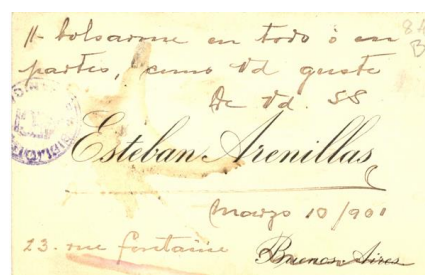 bolsarme en todo ó en
partes, como Vd guste
De Vd. SS
Esteban Arenillas
Marzo 10/901
23. rue fontaine
Buenos Aires